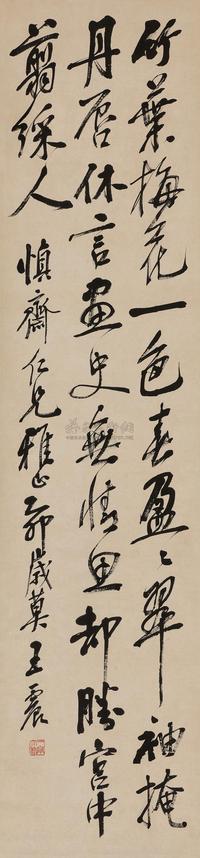 竹葉梅花一色春盈〻翠袖掩
丹唇休言畫史無情思却勝宮中
翦綵人
慎齋仁兄雅正乙卯歲莫王震